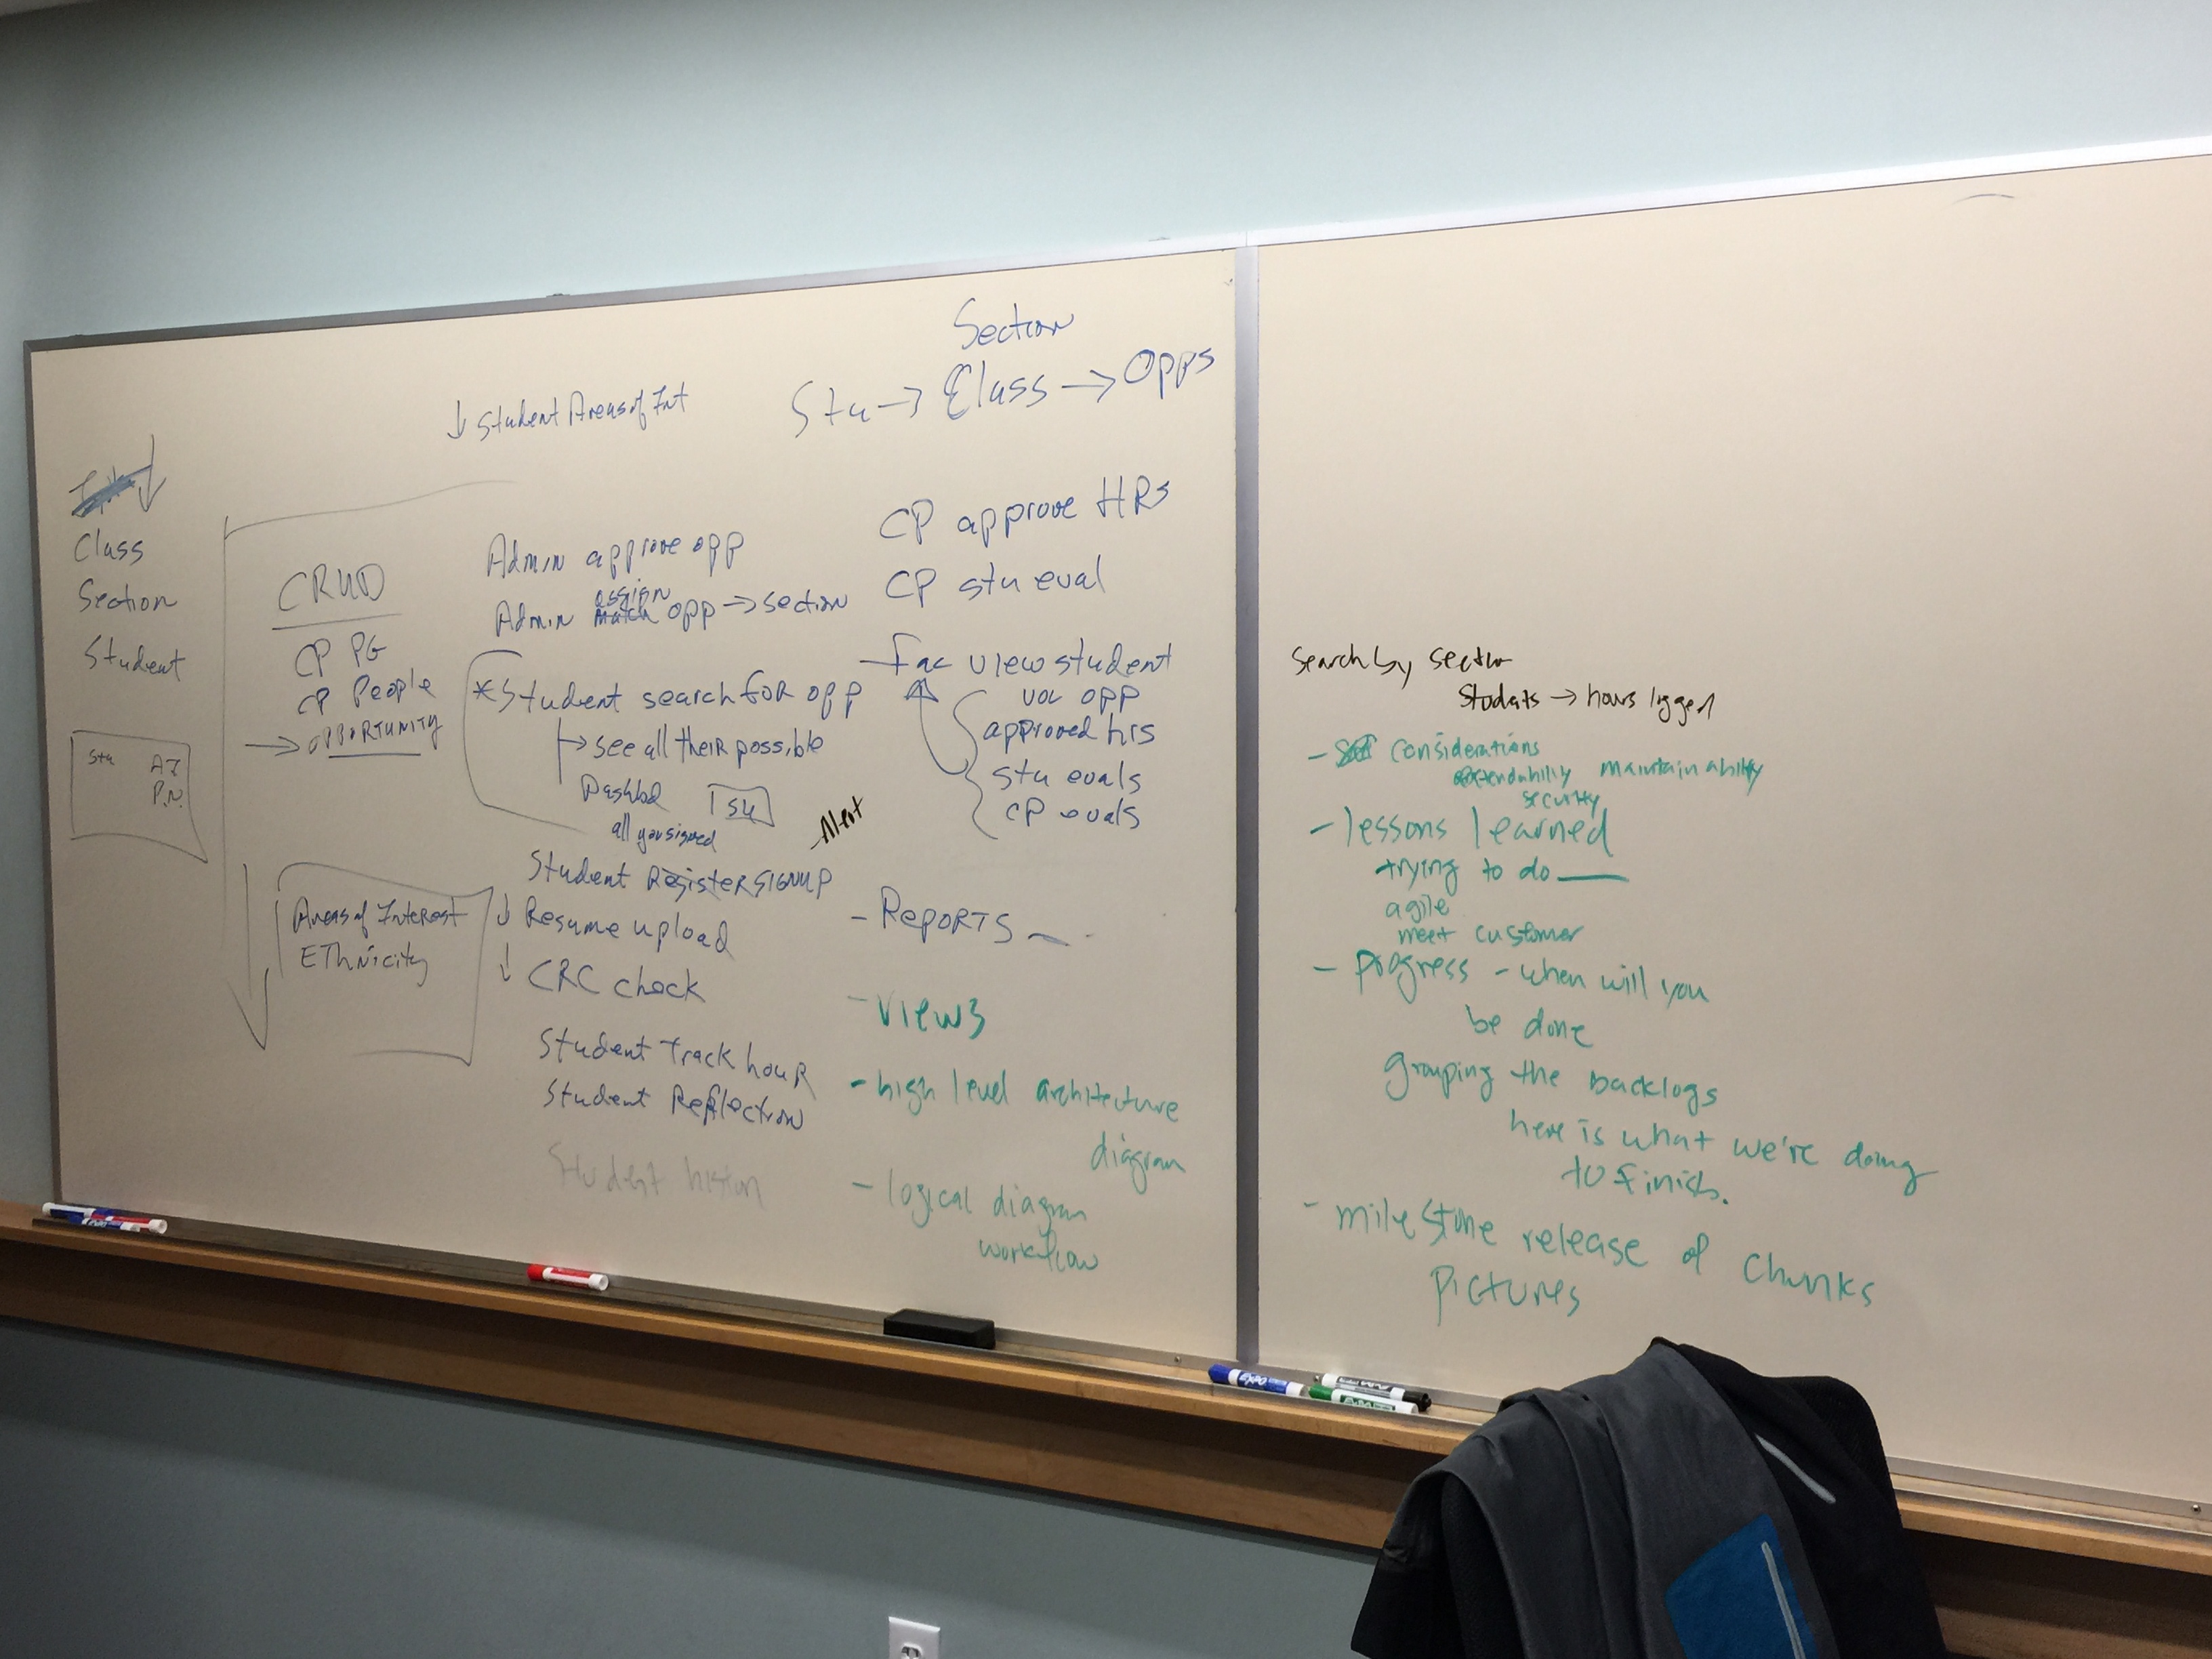 Section
Stu → Class → Opps
↓ Student Areas of Int
Class
Section
Student
Stu AI
P.N.
CRUD
CP PG
CP People
→ OPPORTUNITY
Areas of Interest
EThnicity
Admin approve opp
assign
Admin match opp → section
*Student search FOR opp
→ see all theiR possible
Dashbd
all you signed
Alert
Student RegisteR SIGNUP
↓ Resume upload
↓ CRC check
Student Track houR
Student Reflection
Student history
CP approve HRs
CP stu eval
Fac view student
opp
approved hrs
stu evals
CP evals
- RepoRTS
- views
- high level architecture
diagram
- logical diagram
workflow
Search by section
Students → hours logged
- considerations
extendability maintainability
security
- lessons learned
trying to do ____
agile
meet customer
- progress - when will you
be done
grouping the backlogs
here is what we're doing
to finish.
- milestone release of chunks
pictures